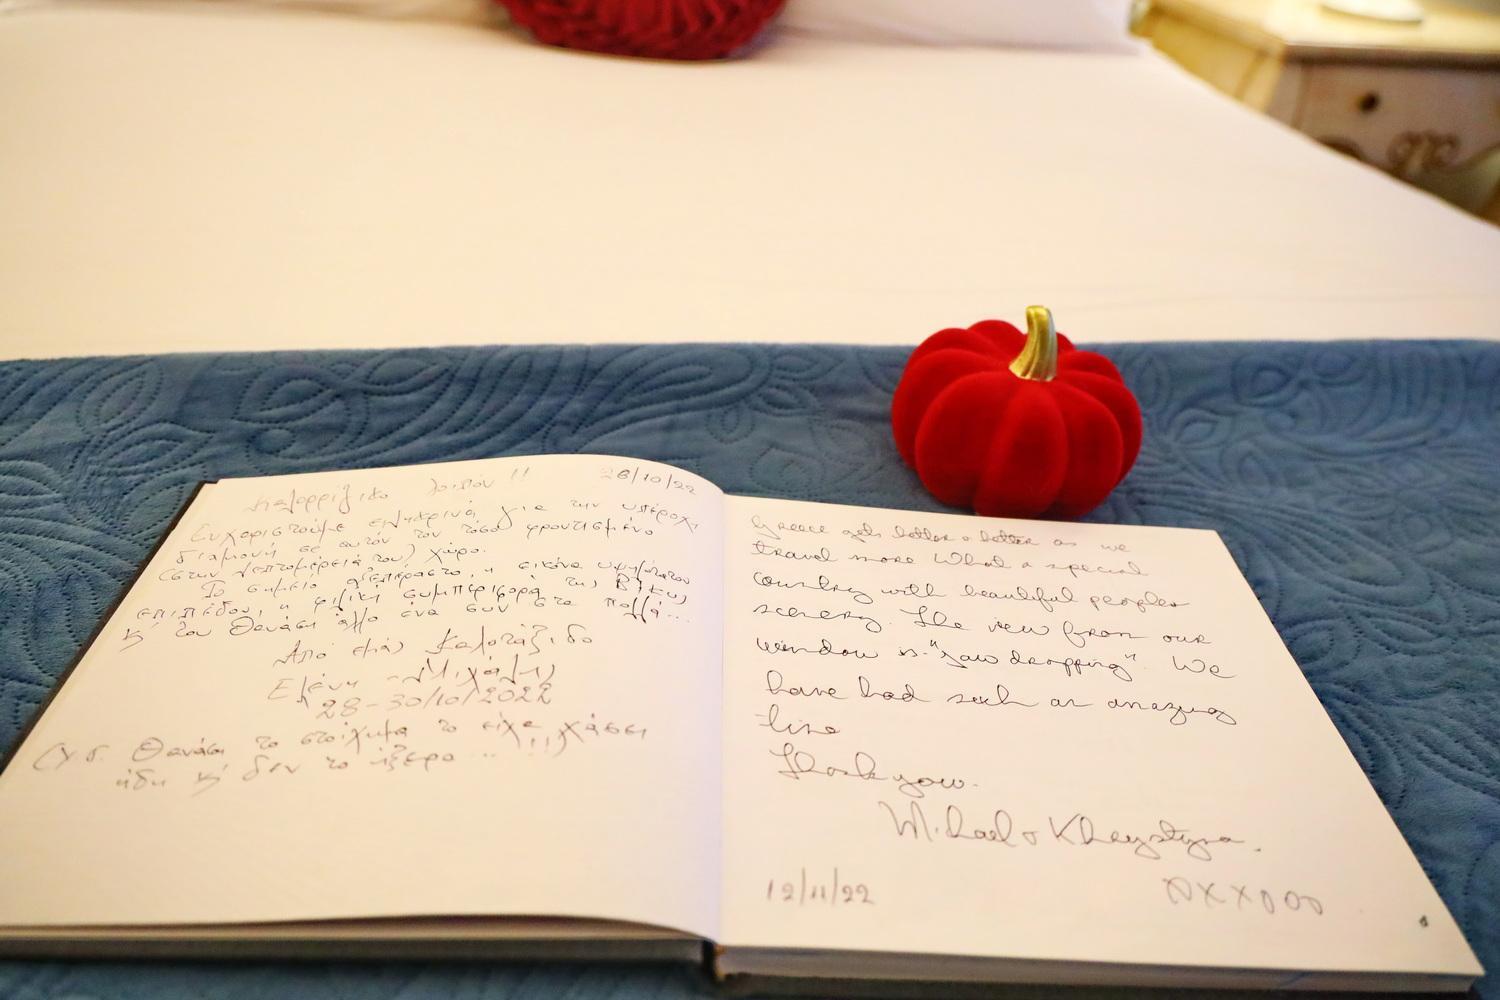 Καλορρίζικο λοιπόν !! 28/10/22
Ευχαριστούμε ειλικρινά, για την υπέροχη
διαμονή σε αυτόν τον τόσο φροντισμένο
(στην λεπτομέρειά του) χώρο.
Το σημείο αξεπέραστο, η εικόνα υψηλότατου
επιπέδου, η φιλική συμπεριφορά της
κ' του Θανάση άλλο ένα συν στα πολλά...
Από εμάς Καλοτάξιδο
Ελένη - Μιχάλης
28-30/10/2022
(Υ.Γ. Θανάση το στοίχημα το είχα χάσει
ήδη κ' δεν το ήξερα ... !!)
Greece gets better & better as we
travel more What a special
country with beautiful peoples
scenery. The view from our
window is "jaw dropping". We
have had such an amazing
time
Thank you.
Michael & Khrystyna.
12/11/22 XXXOOO